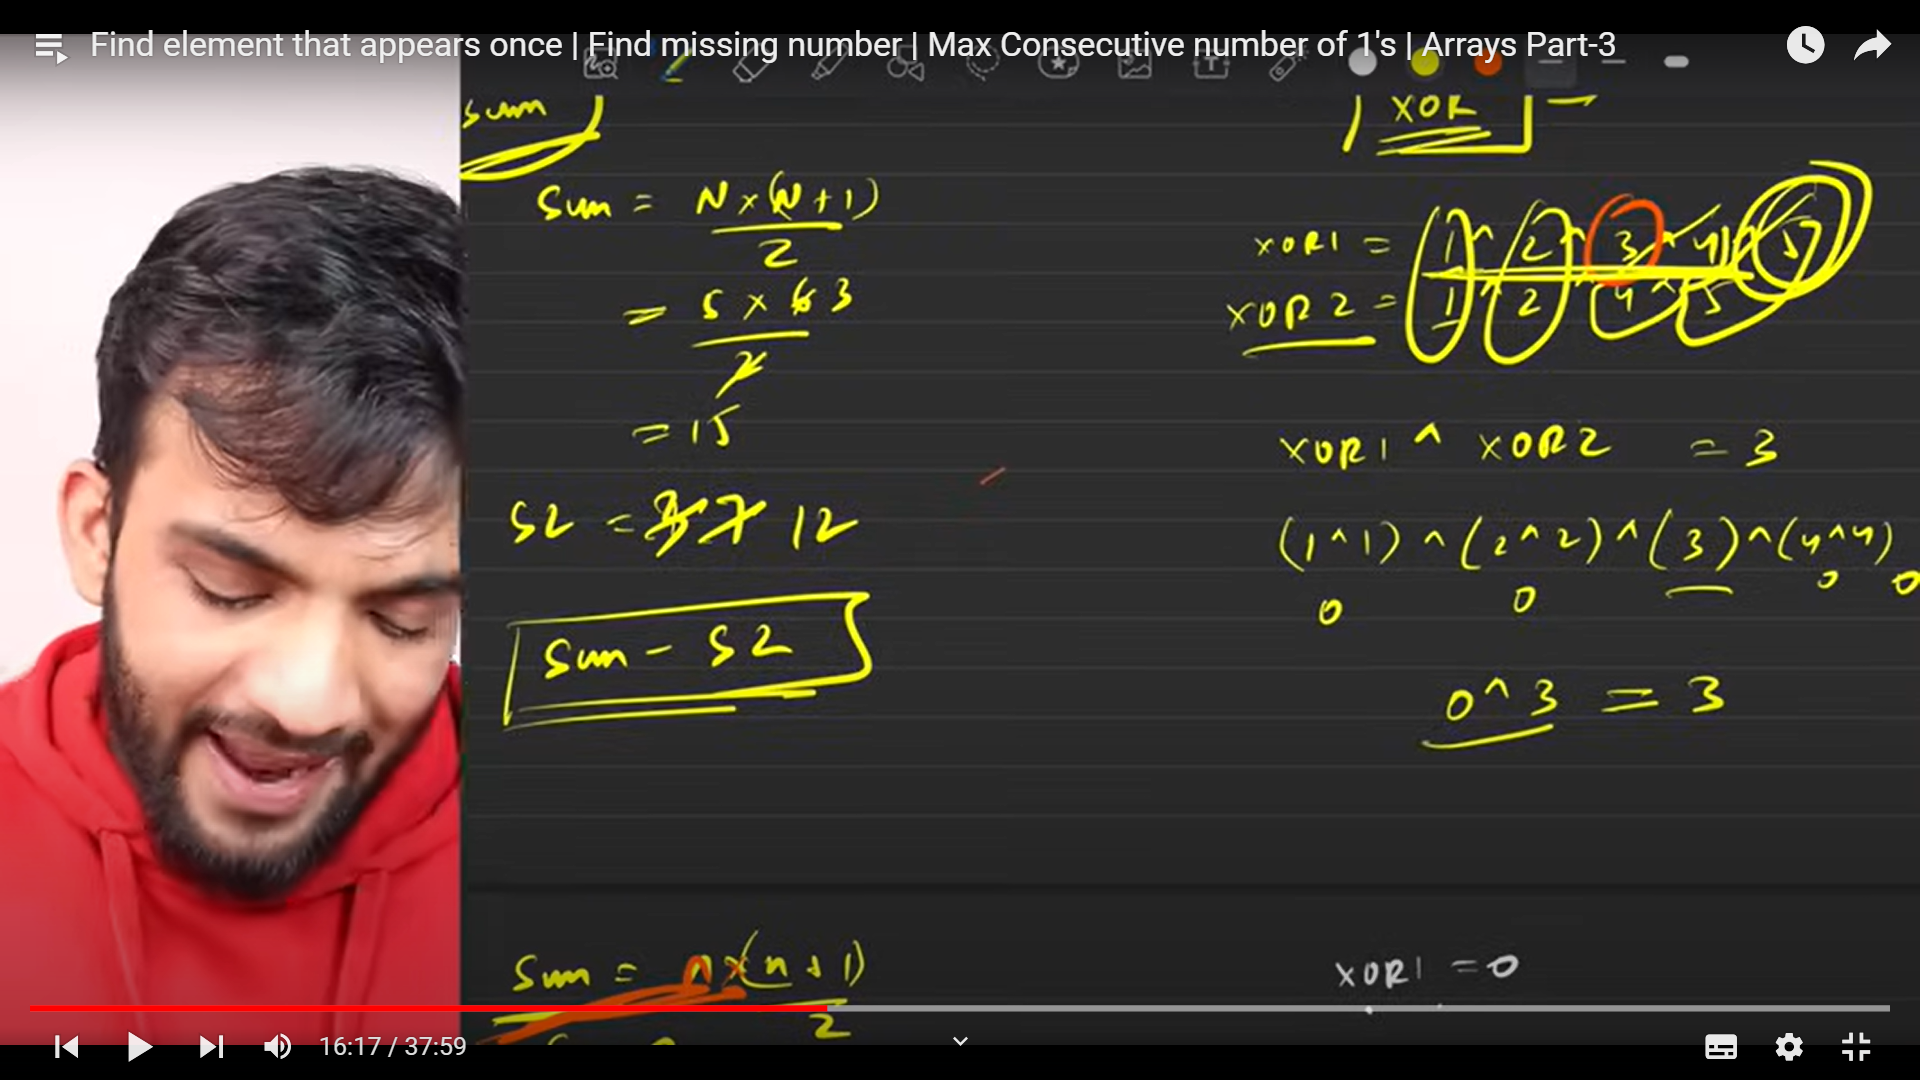 Find element that appears once | Find missing number | Max Consecutive number of 1's | Arrays Part-3
sum
Sum = N x (N + 1)
2
= 5 x 6 3
2
= 15
S2 = 12
Sum - S2
XOR
XOR1 = 1 ^ 2 ^ 3 ^ 4 ^ 5
XOR2 = 1 ^ 2 ^ 4 ^ 5
XOR1 ^ XOR2 = 3
(1^1) ^ (2^2) ^ (3) ^ (4^4)
0 0 0 0
0^3 = 3
Sum = n x (n + 1)
2
XOR1 = 0
16:17 / 37:59